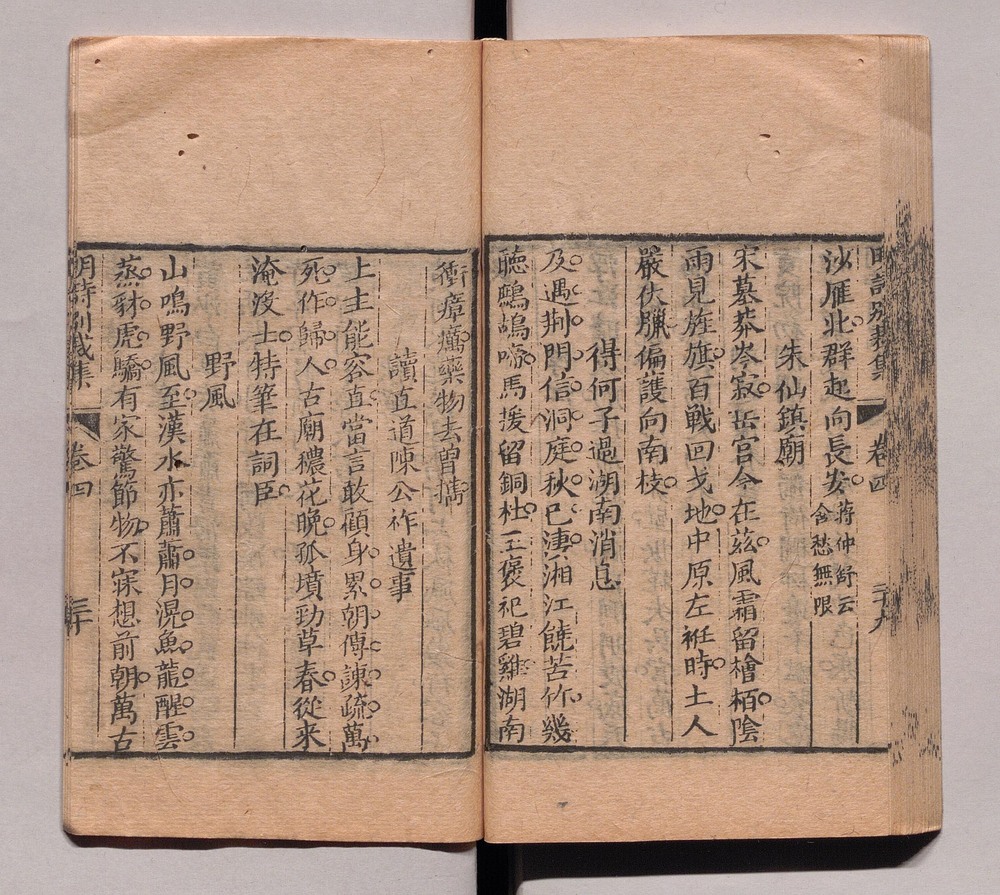 明詩別裁集 卷四 二十九
沙雁北群起向長安蔣仲舒云
含愁無限
朱仙鎮廟
宋墓莽岑寂岳宫今在茲風霜留檜栢陰
雨見旌旗百戰回戈地中原左袵時土人
嚴伏臘偏護向南枝
得何子過湖南消息
及遇荆門信洞庭秋已凄湘江饒苦竹幾
聽鷓鴣啼馬援留銅柱王褒祀碧雞湖南
衝瘴癘藥物去曾攜
讀直道陳公祚遺事
上主能容直當言敢顧身累朝傳諫疏萬
死作歸人古廟穠花晚孤墳勁草春從來
淹没士特筆在詞臣
野風
山鳴野風至漢水亦蕭蕭月滉魚龍醒雲
蒸豺虎驕有家驚節物不寐想前朝萬古
明詩別裁集 卷四 三十